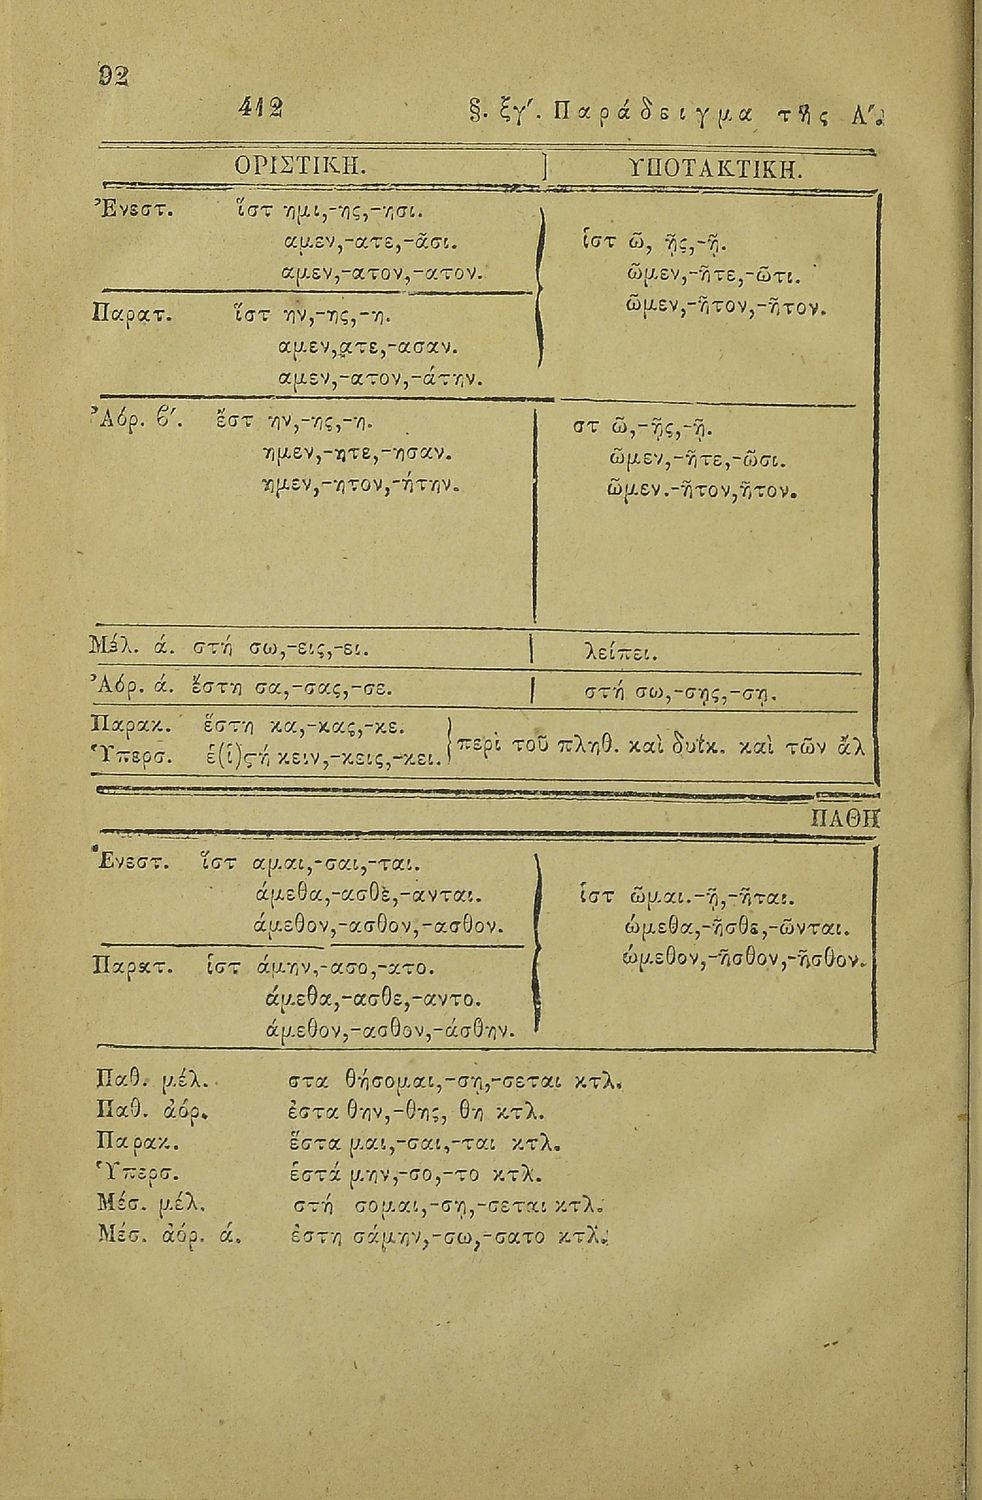 92
412 §. ξγ'. Παράδειγμα τῆς Α'.
ΟΡΙΣΤΙΚΗ. ] ΥΠΟΤΑΚΤΙΚΗ.
Ἐνεστ. ἵστ ημι,-ης,-ησι.
αμεν,-ατε,-ᾶσι. ἱστ ῶ, ῇς,-ῇ.
αμεν,-ατον,-ατον. ῶμεν,-ῆτε,-ῶτι.
Παρατ. ἵστ ην,-ης,-η. ῶμεν,-ῆτον,-ῆτον.
αμεν,ατε,-ασαν.
αμεν,-ατον,-άτην.
Ἀόρ. β'. ἔστ ην,-ης,-η. στ ῶ,-ῇς,-ῇ.
ημεν,-ητε,-ησαν. ῶμεν,-ῆτε,-ῶσι.
ημεν,-ητον,-ήτην. ῶμεν.-ῆτον,ῆτον.
Μέλ. ά. στή σω,-εις,-ει. | λείπει.
Ἀόρ. ά. ἔστη σα,-σας,-σε. | στή σω,-σῃς,-σῃ.
Παρακ. ἕστη κα,-κας,-κε. περὶ τοῦ πληθ. καὶ δυϊκ. καὶ τῶν ἄλ
Ὑπερσ. ἑ(ἱ)ςή κειν,-κεις,-κει.
ΠΑΘΗ
Ἐνεστ. ἵστ αμαι,-σαι,-ται.
άμεθα,-ασθὲ,-ανται. ἱστ ῶμαι.-ῇ,-ῆται.
άμεθον,-ασθον,-ασθον. ώμεθα,-ῆσθε,-ῶνται.
Παρατ. ἱστ άμην,-ασο,-ατο. ώμεθον,-ῆσθον,-ῆσθον.
άμεθα,-ασθε,-αντο.
άμεθον,-ασθον,-άσθην.
Παθ. μέλ. στα θήσομαι,-σῃ,-σεται κτλ.
Παθ. ἀόρ. ἐστα θην,-θης, θη κτλ.
Παρακ. ἕστα μαι,-σαι,-ται κτλ.
Ὑπερσ. ἑστά μην,-σο,-το κτλ.
Μέσ. μέλ. στή σομαι,-σῃ,-σεται κτλ.
Μέσ. ἀόρ. ά. ἐστη σάμην,-σω,-σατο κτλ.